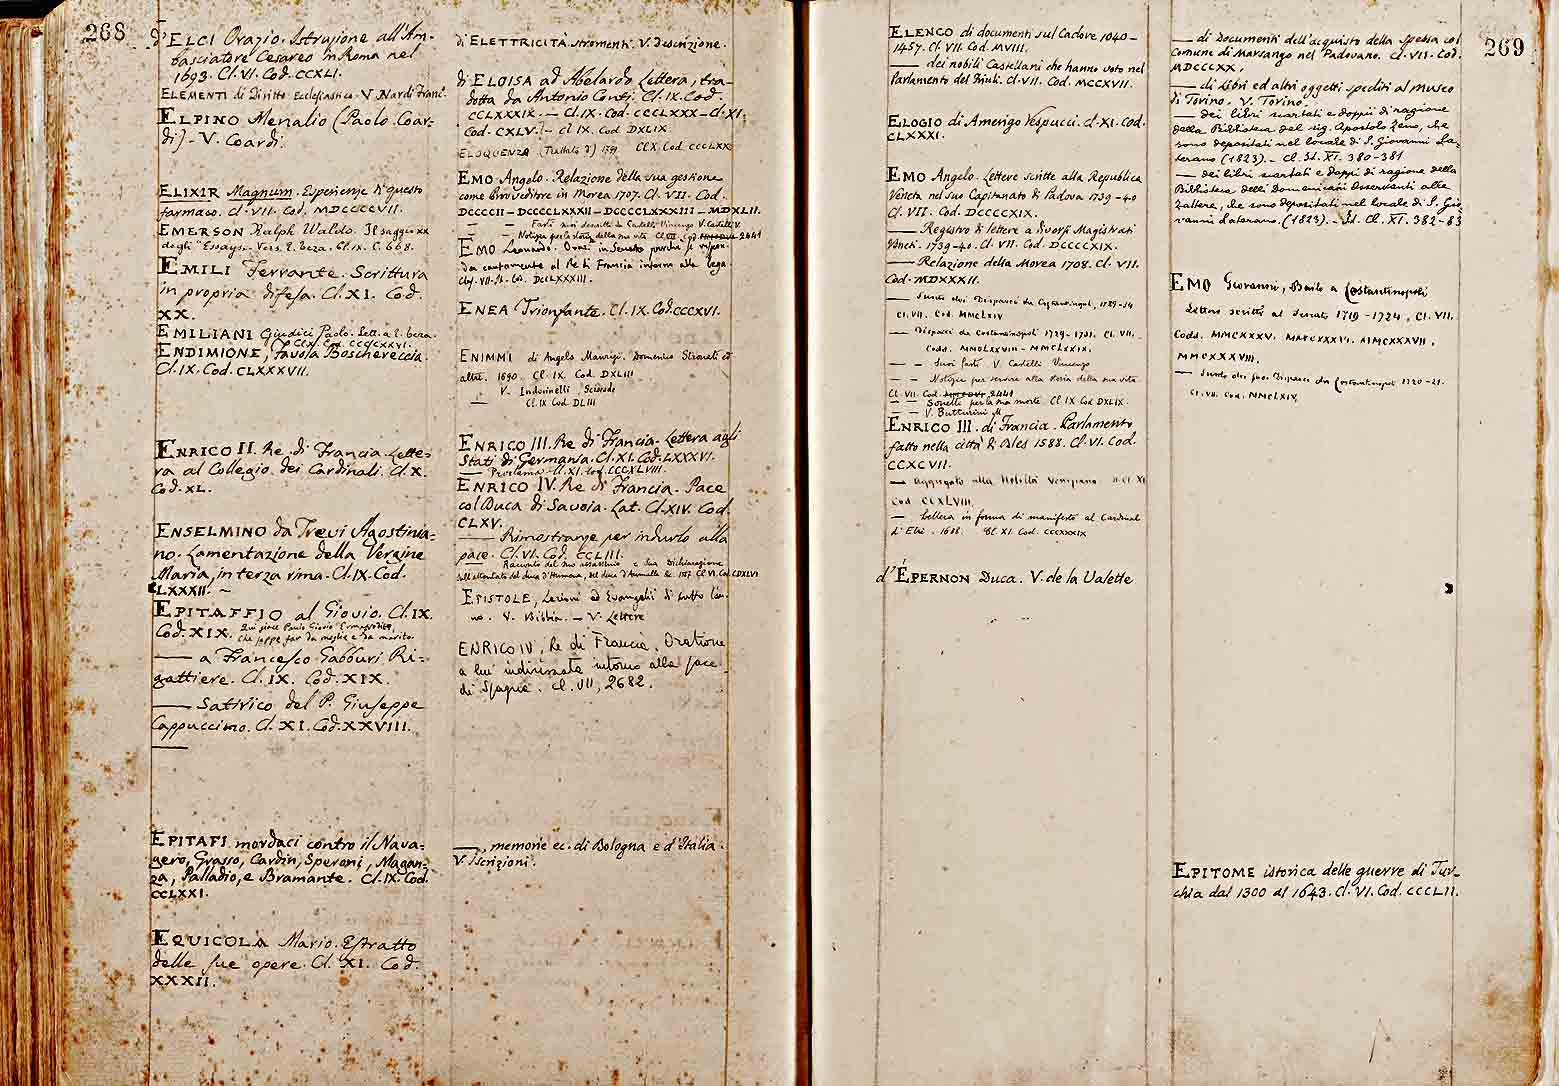 268
d'ELCI Orazio. Istruzione all'Am-
basciatore Cesareo in Roma nel
1693. Cl. VI. Cod. CCXLI.
ELEMENTI di Diritto Ecclesiastico. V. Nardi Franc.
ELPINO Menalio (Paolo Coar-
di) - V. Coardi.
ELIXIR Magnum. Esperienze di questo
farmaco. Cl. VII. Cod. MDCCCCVII.
EMERSON Ralph Waldo. Il saggio XX
degli "Essays". Vers. E. Teza. Cl. IX. C. 668.
EMILI Ferrante. Scrittura
in propria difesa. Cl. XI. Cod.
XX.
EMILIANI Giudici Paolo. Lett. a E. Teza.
ENDIMIONE, favola Boschereccia.
Cl. IX. Cod. CLXXXVII.
ENRICO II. Re di Francia. Lette-
ra al Collegio dei Cardinali. Cl. X.
Cod. XL.
ENSELMINO da Trevi Agostinia-
no. Lamentazione della Vergine
Maria, in terza rima. Cl. IX. Cod.
LXXXII. -
EPITAFFIO al Giovio. Cl. IX.
Cod. XIX. Qui giace Paulo Giovio Ermafrodito,
che seppe far da moglie e da marito.
— a Francesco Gabburi Ri-
gattiere. Cl. IX. Cod. XIX.
— Satirico del P. Giuseppe
Cappuccino. Cl. XI. Cod. XXVIII.
—
EPITAFI mordaci contro il Nava-
gero, Grasso, Cardin, Speroni, Magan-
za, Palladio, e Bramante. Cl. IX. Cod.
CCLXXI.
EQUICOLA Mario. Estratto
delle sue opere. Cl. XI. Cod.
XXXII.
d'ELETTRICITÀ stromenti. V. Descrizione.
di ELOISA ad Abelardo Lettera, tra-
dotta da Antonio Conti. Cl. IX. Cod.
CCLXXXIX. — Cl. IX. Cod. CCCLXXX — Cl. XI.
Cod. CXLV. — Cl. IX. Cod. DXLIX.
ELOQUENZA (Trattato d') Cl. X. Cod. CCCLXX
EMO Angelo. Relazione della sua gestione
come Provveditore in Morea 1707. Cl. VII. Cod.
DCCCCII — DCCCCLXXXII — DCCCCLXXXIII — MDXLII.
— Fasti suoi descritti da Castelli Vincenzo. V. Castelli V.
— Notizie per la storia della sua vita Cl. VII. Cod. 2441
EMO Leonardo. Oraz. in Senato perchè si rispon-
da cautamente al Re di Francia intorno alla lega.
Cl. VII. Cod. DCCLXXXIII.
ENEA Trionfante. Cl. IX. Cod. CCCXVI.
ENIMMI di Angelo Maurizi. Domenico ed
altri. 1690. Cl. IX. Cod. DXLIII
V. Indovinelli, Sciarade
— Cl. IX Cod. DLIII
ENRICO III. Re di Francia. Lettera agli
Stati di Germania. Cl. XI. Cod. LXXXVI.
— Proclama. Cl. XI. Cod. CCCXLVIII.
ENRICO IV. Re di Francia. Pace
col Duca di Savoia. Lat. Cl. XIV. Cod.
CLXV.
— Rimostranze per indurlo alla
pace. Cl. VI. Cod. CCLIII.
— Racconto del suo assassinio e sua Dichiarazione
sull'attentato del duca d'Aumale &c. 1587. Cl. VI. Cod. CDXLVI
EPISTOLE, Lezioni ed Evangelii di tutto l'an-
no. V. Bibbia. — V. Lettere
ENRICO IV, Re di Francia. Orazione
a lui indirizzata intorno alla pace
di Spagna. Cl. VII, 2682.
—, memorie ec. di Bologna e d'Italia.
V. Iscrizioni.
ELENCO di documenti sul Cadore 1040-
1457. Cl. VII. Cod. MVIII.
— dei nobili Castellani che hanno voto nel
Parlamento del Friuli. Cl. VII. Cod. MCCXVII.
ELOGIO di Amerigo Vespucci. Cl. XI. Cod.
CLXXXI.
EMO Angelo. Lettere scritte alla Repubblica
Veneta nel suo Capitanato di Padova 1739-40
Cl. VII. Cod. DCCCCXIX.
— Registro di lettere a diversi Magistrati
Veneti. 1739-40. Cl. VII. Cod. DCCCCXIX.
— Relazione della Morea 1708. Cl. VII.
Cod. MDXXXII.
— Sunto dei Dispacci da Costantinopoli, 1729-34
Cl. VII. Cod. MMCLXIV
— Dispacci da Costantinopoli 1729-1731. Cl. VII.
Codd. MMCLXXVIII — MMCLXXIX.
— Suoi fasti V. Castelli Vincenzo
— Notizie per servire alla storia della sua vita
Cl. VII. Cod. 2441
— Sonetti per la sua morte. Cl. IX Cod. DXLIX.
— V. Butturini M
ENRICO III. di Francia. Parlamento
fatto nella città di Bles 1588. Cl. VI. Cod.
CCXCVII.
— Aggregato alla Nobiltà Veneziana Cl. XI
Cod. CCXLVIII.
— Lettera in forma di manifesto al Cardinal
Cl. XI. Cod. CCCXXXIX
d'ÉPERNON Duca. V. de la Valette
269
— di Documenti dell'acquisto della Spessa col
Comune di Marsango nel Padovano. Cl. VII. Cod.
MDCCLXX.
— di libri ed altri oggetti spediti al Museo
di Torino. V. Torino.
— dei libri scartati e doppii di ragione
della Biblioteca del sig. Apostolo Zeno, che
sono depositati nel locale di S. Giovanni La-
terano (1823). — Cl. It. XI. 380-381
— dei libri scartati e doppi di ragione della
Biblioteca delli Domenicani Osservanti alle
Zattere, che sono depositati nel locale di S. Gio-
vanni Laterano. (1823). It. Cl. XI. 382-83
EMO Giovanni, Bailo a Costantinopoli
Lettere scritte al Senato 1719-1724, Cl. VII.
Codd. MMCXXXV. MMCXXXVI. MMCXXXVII,
MMCXXXVIII.
— Sunto dei suoi Dispacci da Costantinopoli 1720-21.
Cl. VII. Cod. MMCLXIV
EPITOME istorica delle guerre di Tur-
chia dal 1300 al 1643. Cl. VI. Cod. CCCLII.